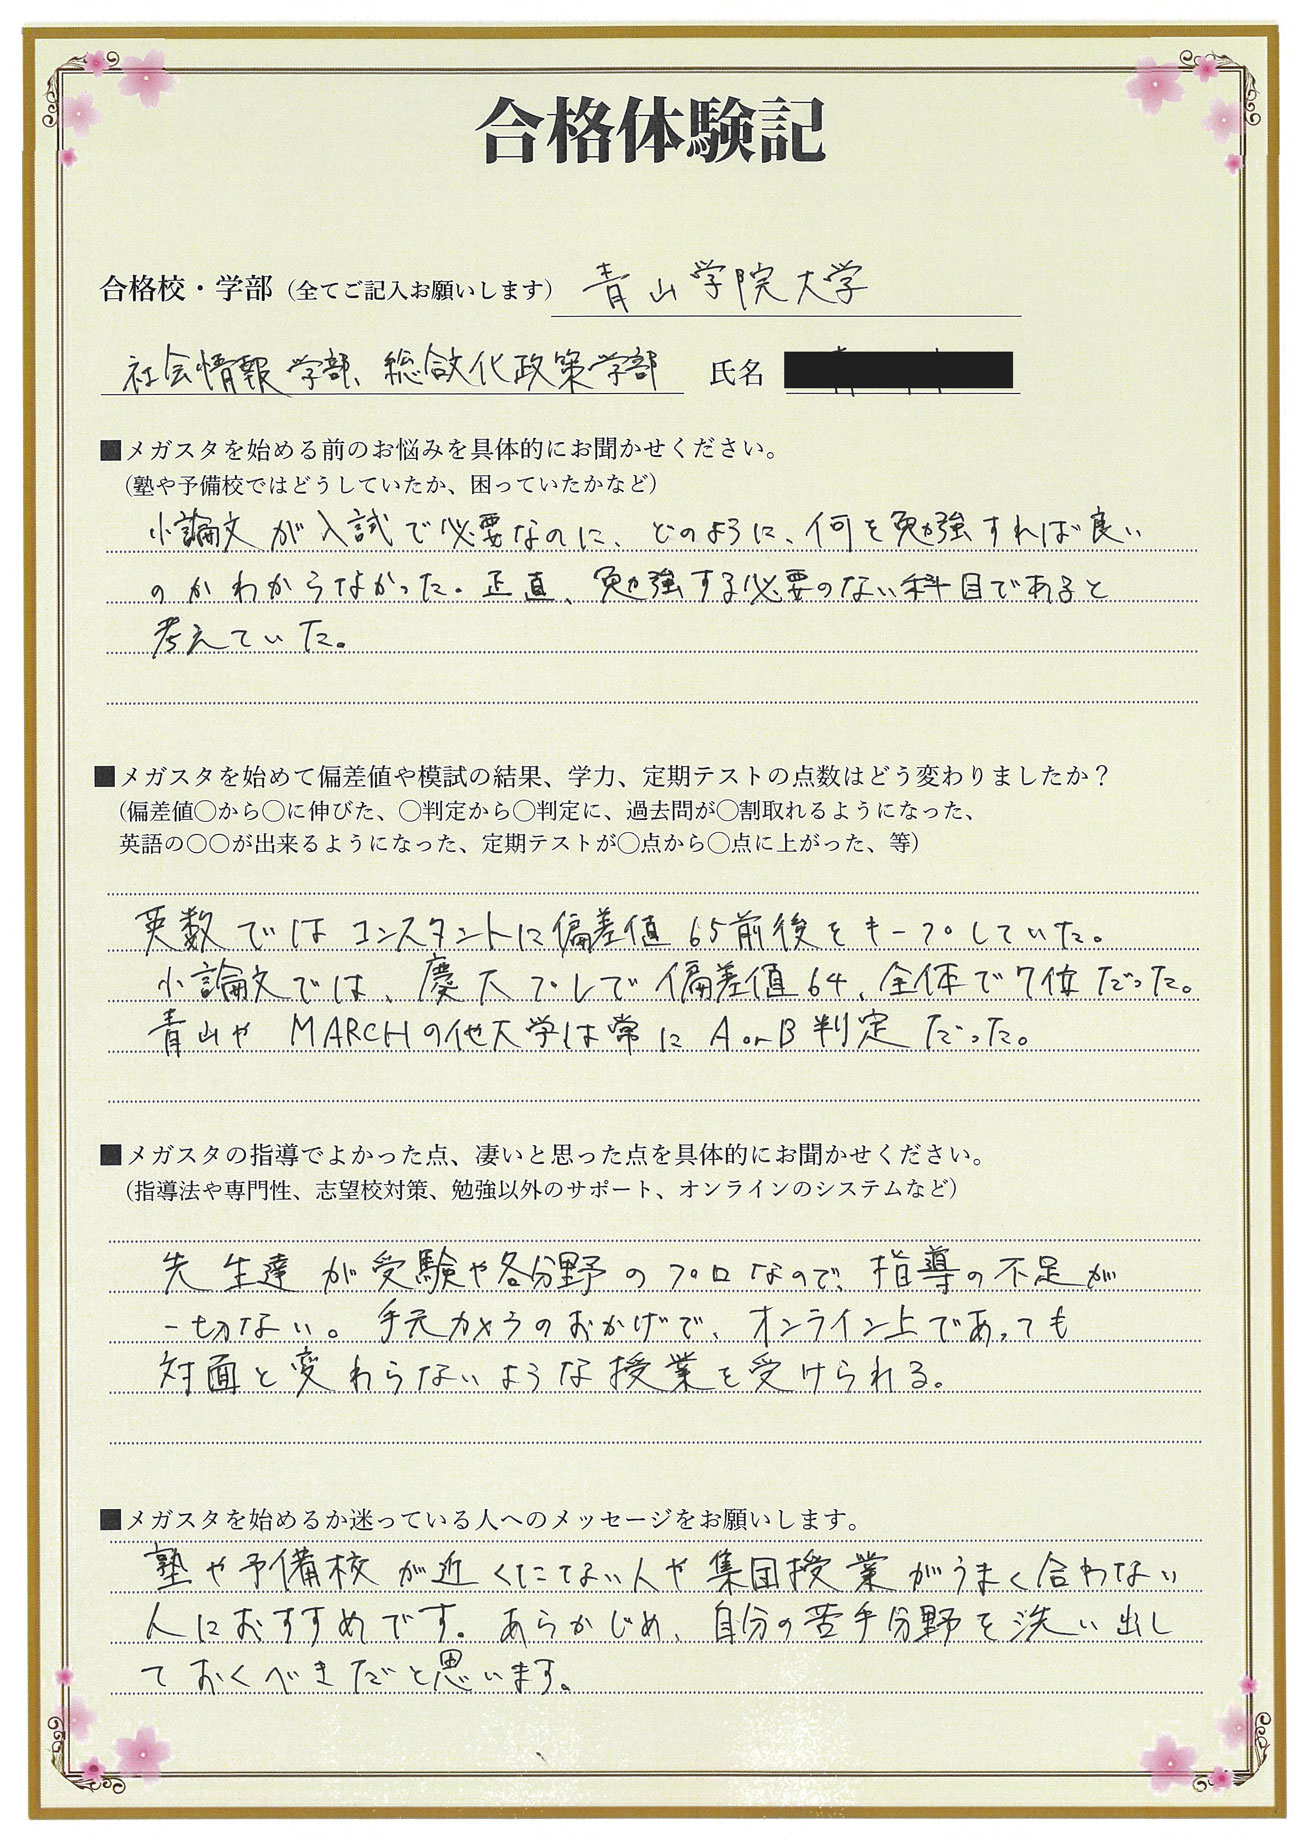 合格体験記
合格校・学部（全てご記入お願いします） 青山学院大学
社会情報学部、総合文化政策学部 氏名
■メガスタを始める前のお悩みを具体的にお聞かせください。
（塾や予備校ではどうしていたか、困っていたかなど）
小論文が入試で必要なのに、どのように、何を勉強すれば良い
のかわからなかった。正直、勉強する必要のない科目であると
考えていた。
■メガスタを始めて偏差値や模試の結果、学力、定期テストの点数はどう変わりましたか？
（偏差値〇から〇に伸びた、〇判定から〇判定に、過去問が〇割取れるようになった、
英語の〇〇が出来るようになった、定期テストが〇点から〇点に上がった、等）
英数ではコンスタントに偏差値65前後をキープしていた。
小論文では、慶大プレで偏差値64、全体で7位だった。
青山や MARCHの他大学は常に A or B 判定だった。
■メガスタの指導でよかった点、凄いと思った点を具体的にお聞かせください。
（指導法や専門性、志望校対策、勉強以外のサポート、オンラインのシステムなど）
先生達が受験や各分野のプロなので、指導の不足が
一切ない。手元カメラのおかげで、オンライン上であっても
対面と変わらないような授業を受けられる。
■メガスタを始めるか迷っている人へのメッセージをお願いします。
塾や予備校が近くにない人や集団授業がうまく合わない
人におすすめです。あらかじめ、自分の苦手分野を洗い出し
ておくべきだと思います。